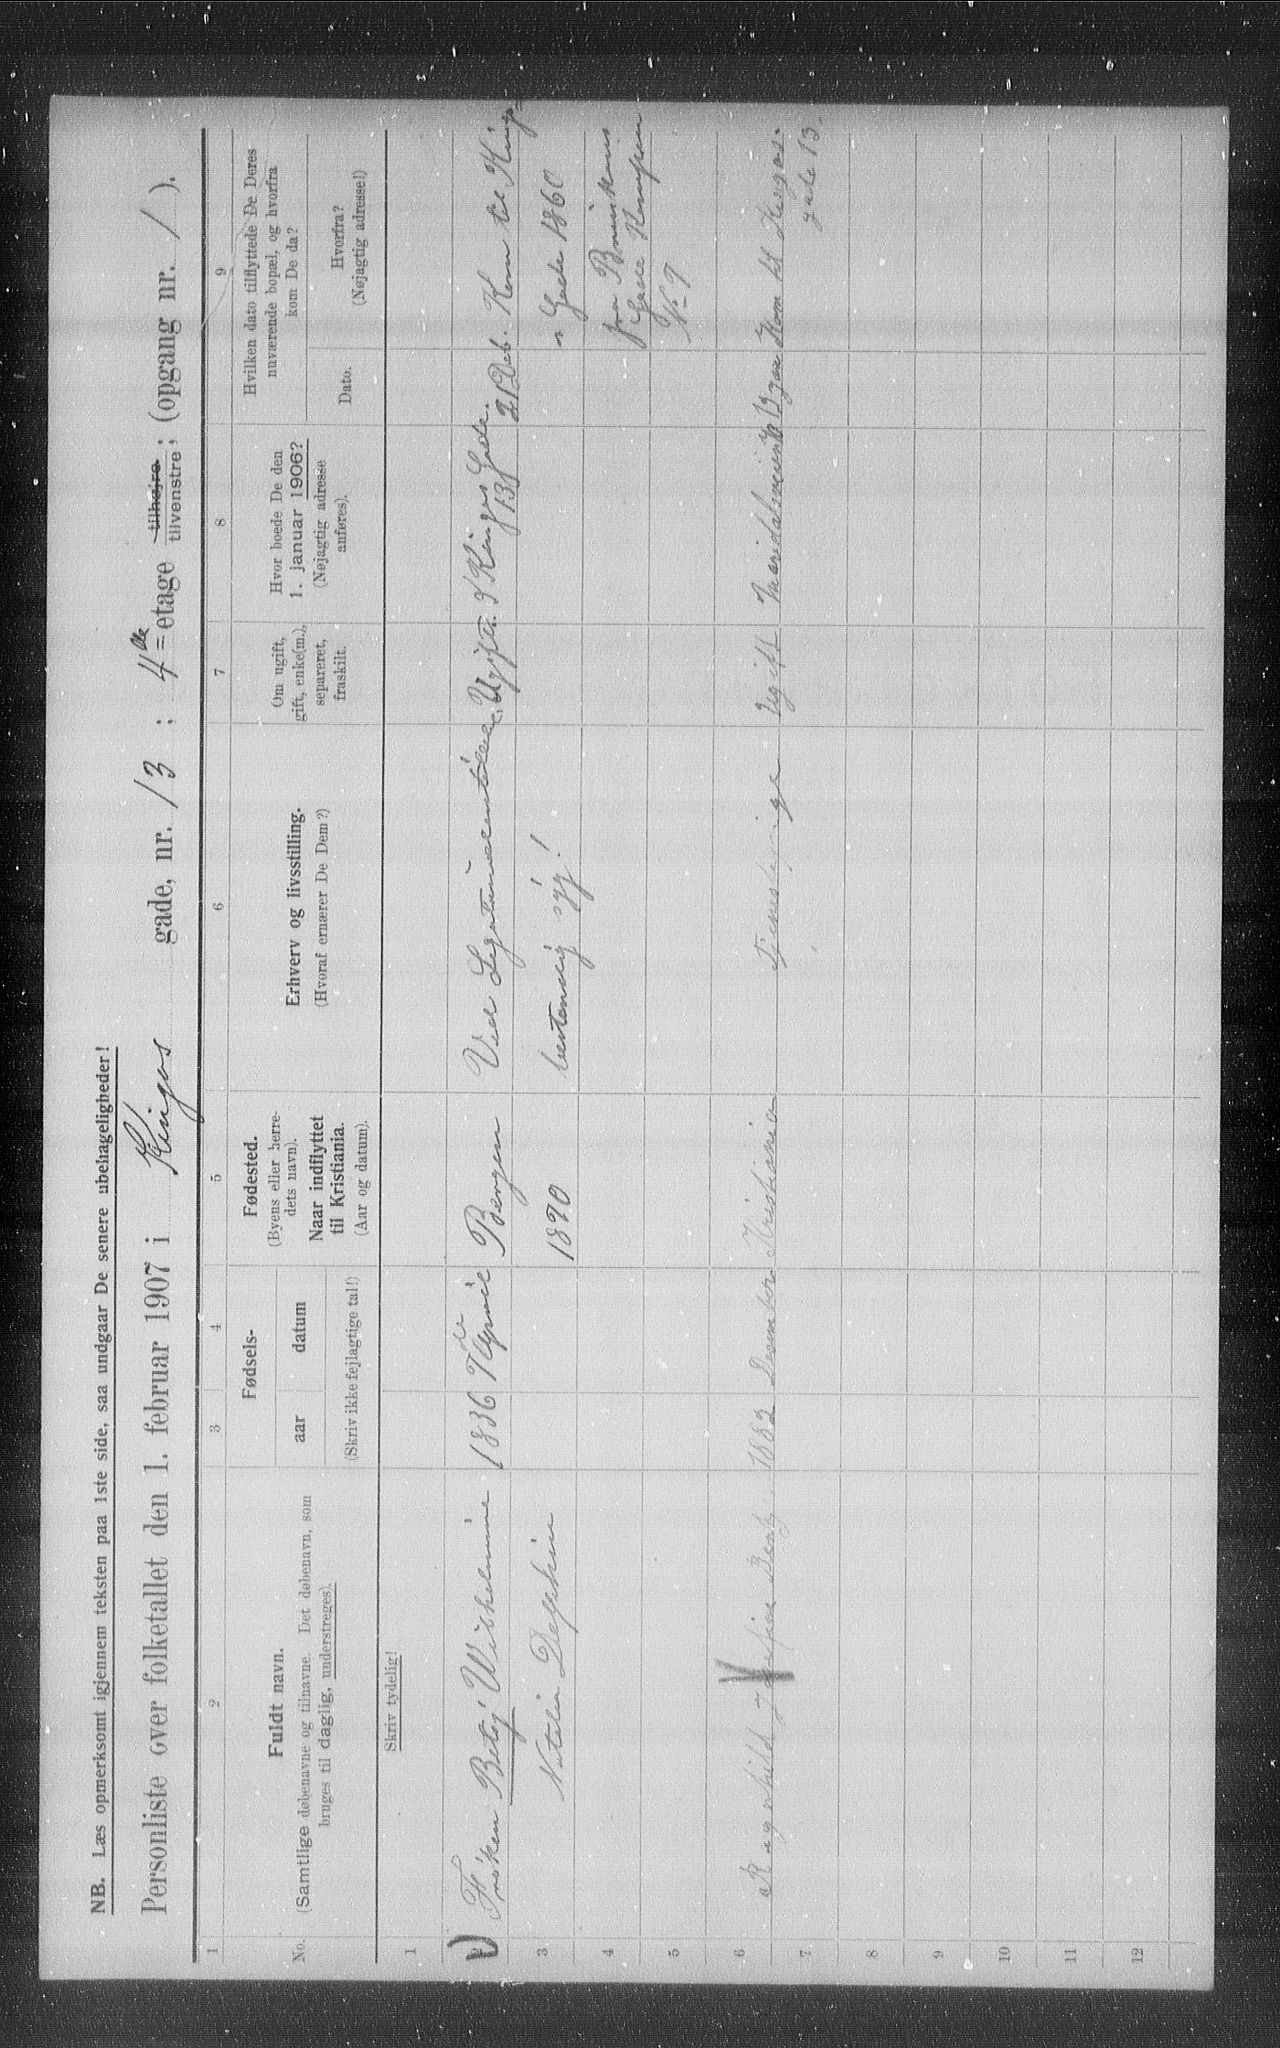 NB. Læs opmerksomt igjennem teksten paa 1ste side, saa undgaar De senere ubehageligheder!
Personliste over folketallet den 1. februar 1907 i Kingos gade, nr. 13 ; 4de etage tilhøjre tilvenstre ; (opgang nr. 1 ).
1 2 3 4 5 6 7 8 9
No.
Fuldt navn.
(Samtlige døbenavne og tilnavne. Det døbenavn, som
bruges til daglig, understreges).
Fødsels-
aar datum
(Skriv ikke fejlagtige tal!)
Fødested.
(Byens eller herre-
dets navn).
Naar indflyttet
til Kristiania.
(Aar og datum).
Erhverv og livsstilling.
(Hvoraf ernærer De Dem?)
Om ugift,
gift, enke(m.),
separeret,
fraskilt.
Hvor boede De den
1. januar 1906?
(Nøjagtig adresse
anføres).
Hvilken dato tilflyttede De Deres
nuværende bopæl, og hvorfra
kom De da?
Dato.
Hvorfra?
(Nøjagtig adresse!)
Skriv tydelig!
1
2 Frøken Betzy Wilhelmine 1836 7de April Bergen Ved Ugift. Kingos Gade. 13 Kom til
3 Natalia 1890 syg! Gade 1860
4 fra
5
6
7 Ragnhild 1882 Desember Kristiania Ugift Kom til Kingos-
gade 13.
8
9
10
11
12